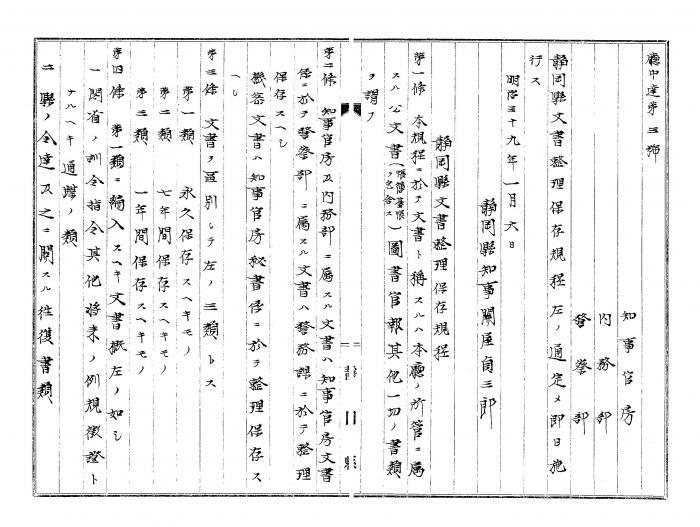 庁中達第三号
知事官房
内務部
警察部
静岡県文書整理保存規程左ノ通定メ即日施
行ス
明治三十九年一月六日
静岡県知事関屋
静岡県文書整理保存規程
第一條 本規程ニ於テ文書ト称スルハ本庁ノ所管ニ属
スル公文書(帳簿ヲ包含ス)図書官報其他一切ノ書類
ヲ謂フ
静岡県
第二條 知事官房及内務部ニ属スル文書ハ知事官房文書
係ニ於テ警察部ニ属スル文書ハ警務課ニ於テ整理
保存スヘシ
機密文書ハ知事官房秘書係ニ於テ整理保存ス
ヘシ
第三條 文書ヲ区別シテ左ノ三類トス
第一類 永久保存スヘキモノ
第二類 七年間保存スヘキモノ
第三類 一年間保存スヘキモノ
第四條 第一類ニ編入スヘキ文書概左ノ如シ
一 閣省ノ訓令指令其他将来ノ例規徴證ト
ナルヘキ通牒ノ類
二 県ノ令達及之ニ関スル往復書類